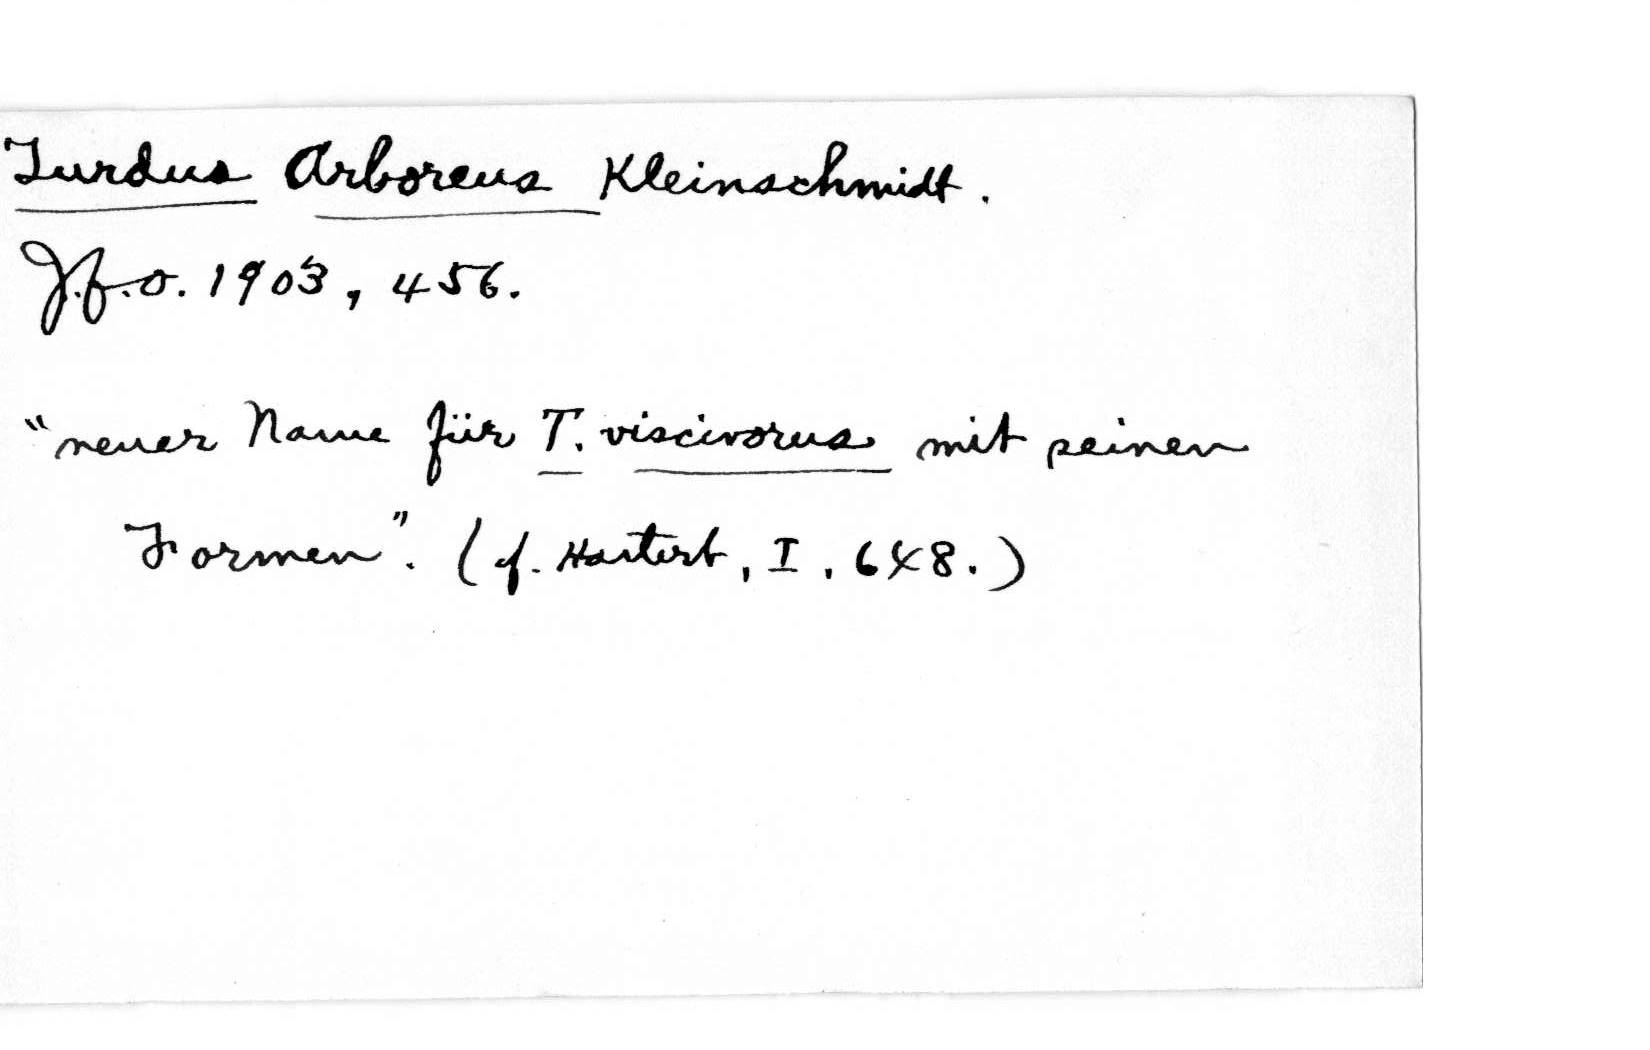 Turdus Arboreus Kleinschmidt.
J.f.O. 1903, 456.
"neuer Name für T. viscivorus mit seinen
Formen". (cf. Hartert, I, 648.)